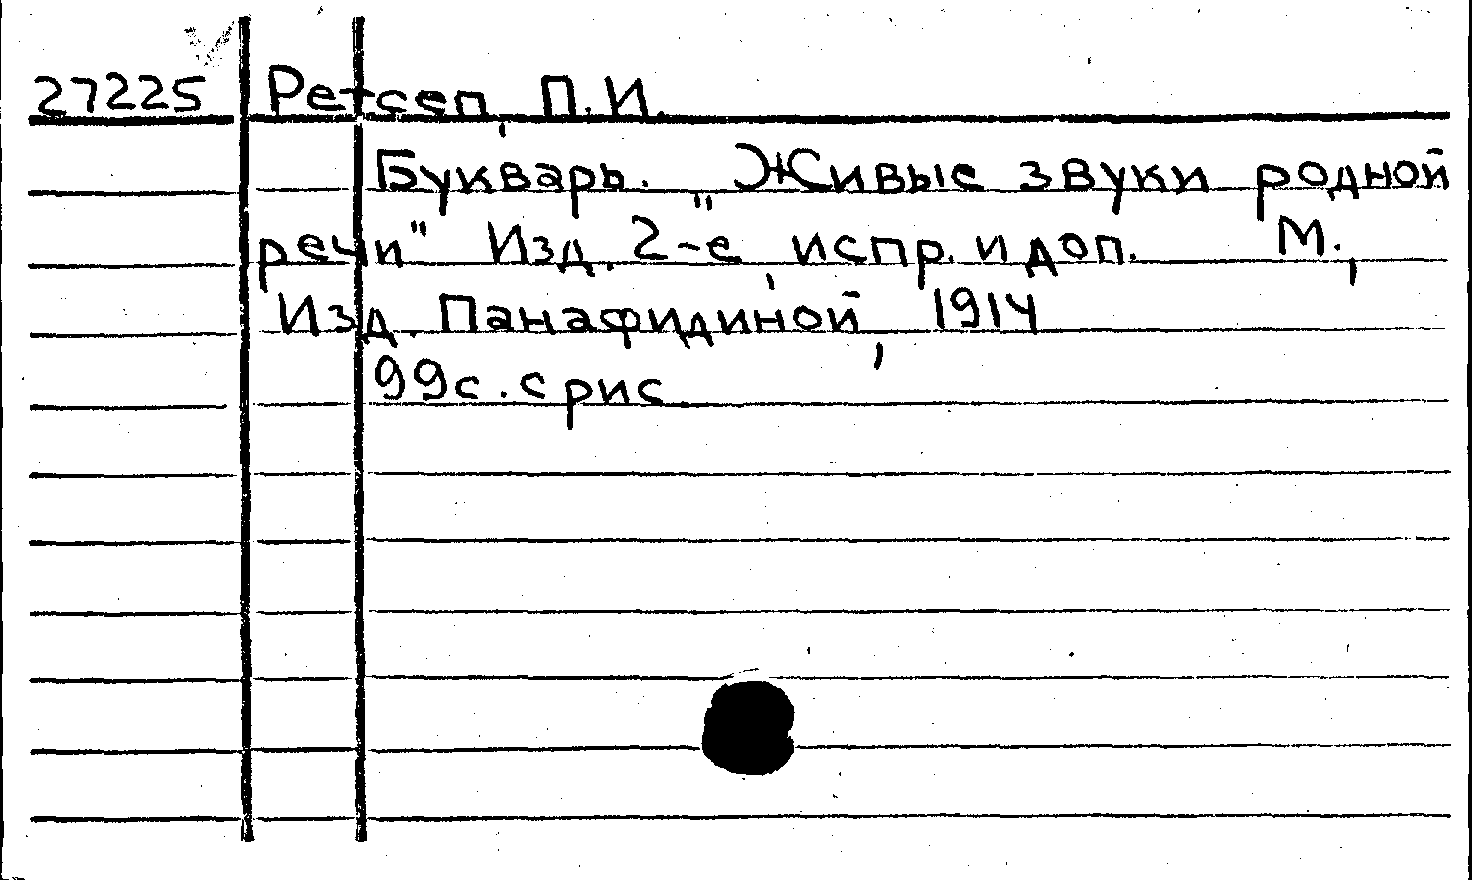 27225 Ретсеп, П.И.
Букварь. „Живые звуки родной
речи" Изд. 2-е, испр. и доп. М.,
Изд. Панафидиной, 1914
99с. с рис.